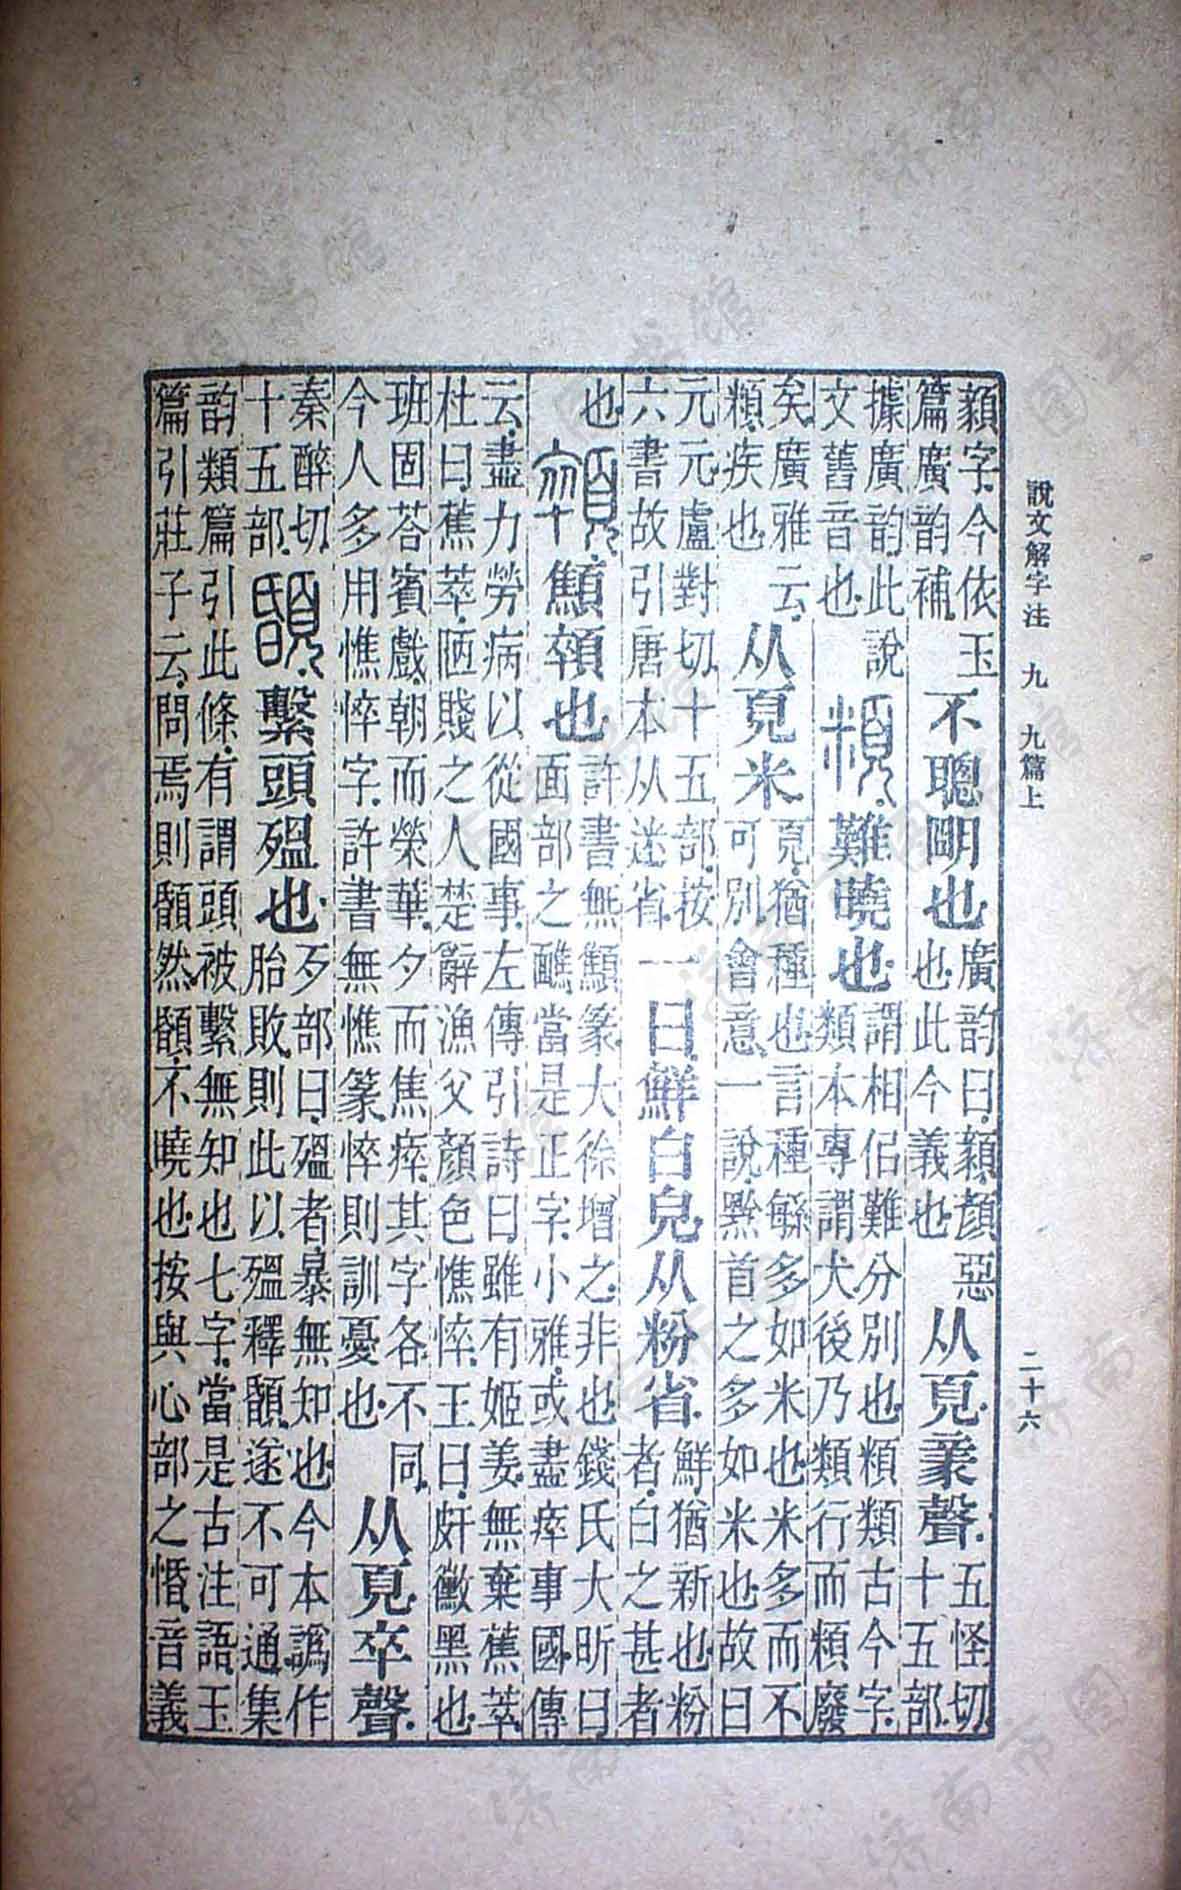 說文解字注 九 九篇上 二十六
顡字今依玉篇廣韵補不聰明也廣韵曰顡顏惡也此今義也从頁豙聲五怪切十五部
據廣韵此說文舊音也頪難曉也謂相佀難分別也頪類古今字類本專謂犬後乃類行而頪廢
矣廣雅云頪疾也从頁米頁猶種也言種緐多如米也米多而不可別會意一說黔首之多如米也故曰
元元盧對切十五部按六書故引唐本从迷省一曰鮮白皃从粉省鮮猶新也粉者白之甚者
也顇顦顇也許書無顦篆大徐增之非也錢氏大昕曰面部之醮當是正字小雅或盡瘁事國傳
云盡力勞病以從國事左傳引詩曰雖有姬姜無棄蕉萃杜曰蕉萃陋賤之人楚辭漁父顏色憔悴王曰皯黴黑也
班固荅賓戲朝而榮華夕而焦瘁其字各不同今人多用憔悴字許書無憔篆悴則訓憂也从頁卒聲
秦醉切十五部䫒繫頭殟也歺部曰殟者暴無知也今本譌作胎敗則此以殟釋䫒遂不可通集
韵類篇引此條有謂頭被繫無知也七字當是古注語玉篇引莊子云問焉則䫒然䫒不曉也按與心部之惛音義